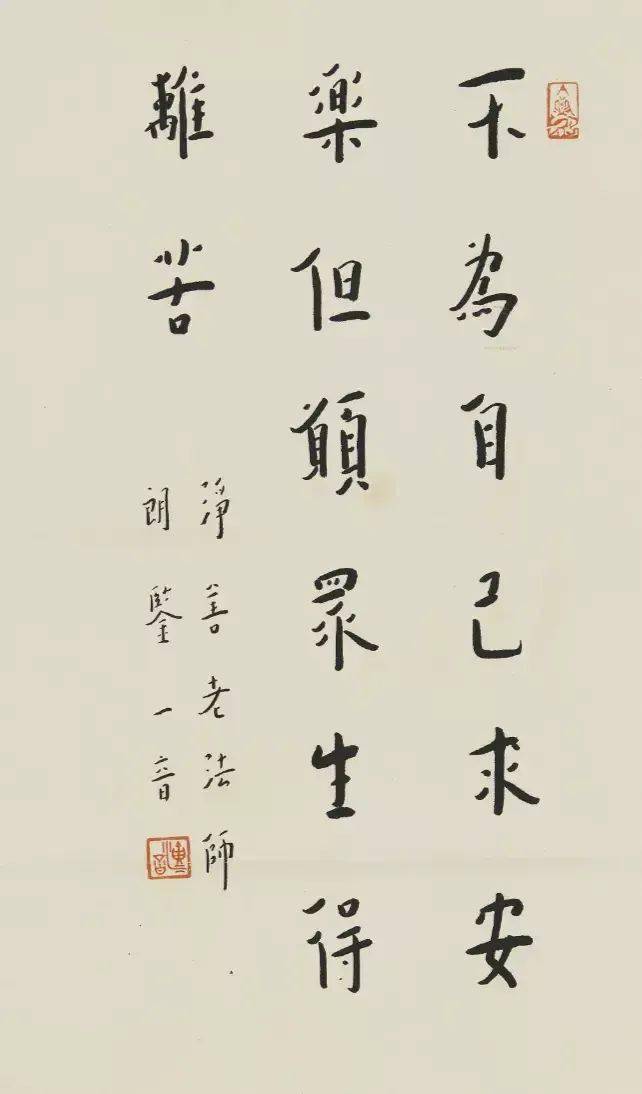 不為自己求安
樂但願眾生得
離苦
淨善老法師
朗鑒一音